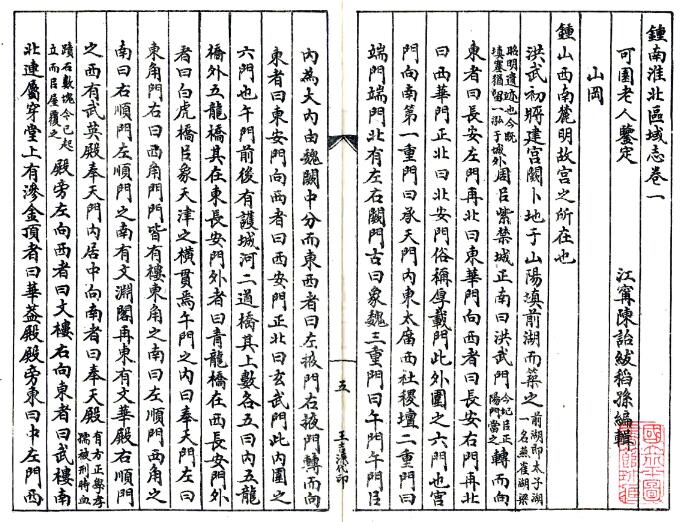 鍾南淮北區域志卷一
可園老人鑒定　江寧陳詒紱稻孫編輯
山岡
鍾山西南麓明故宮之所在也
洪武初將建宮闕卜地于山陽填前湖而築之前湖即太子湖一名燕雀湖梁
昭明遺跡也今既填塞猶留一泓于城外周㠯紫禁城正南曰洪武門今圮㠯正陽門當之轉而向
東者曰長安左門再北曰東華門向西者曰長安右門再北
曰西華門正北曰北安門俗稱厚載門此外圍之六門也宮
門向南第一重門曰承天門內東太廟西社稷壇二重門曰
端門端門北有左右闕門古曰象魏三重門曰午門午門㠯
五
內為大內由魏闕中分而東西者曰左掖門右掖門轉而向
東者曰東安門向西者曰西安門正北曰玄武門此內圍之
六門也午門前後有護城河二過橋其上數各五曰內五龍
橋外五龍橋其在東長安門外者曰青龍橋在西長安門外
者曰白虎橋㠯象天津之橫貫焉午門之內曰奉天門左曰
東角門右曰西角門門皆有樓東角之南曰左順門西角之
南曰右順門左順門之南有文淵閣再東有文華殿右順門
之西有武英殿奉天門內居中向南者曰奉天殿有方正學孝孺被刑時血
蹟石數塊今已起立而㠯屋覆之殿旁左向西者曰文樓右向東者曰武樓南
北連屬穿堂上有滲金頂者曰華蓋殿殿旁東曰中左門西